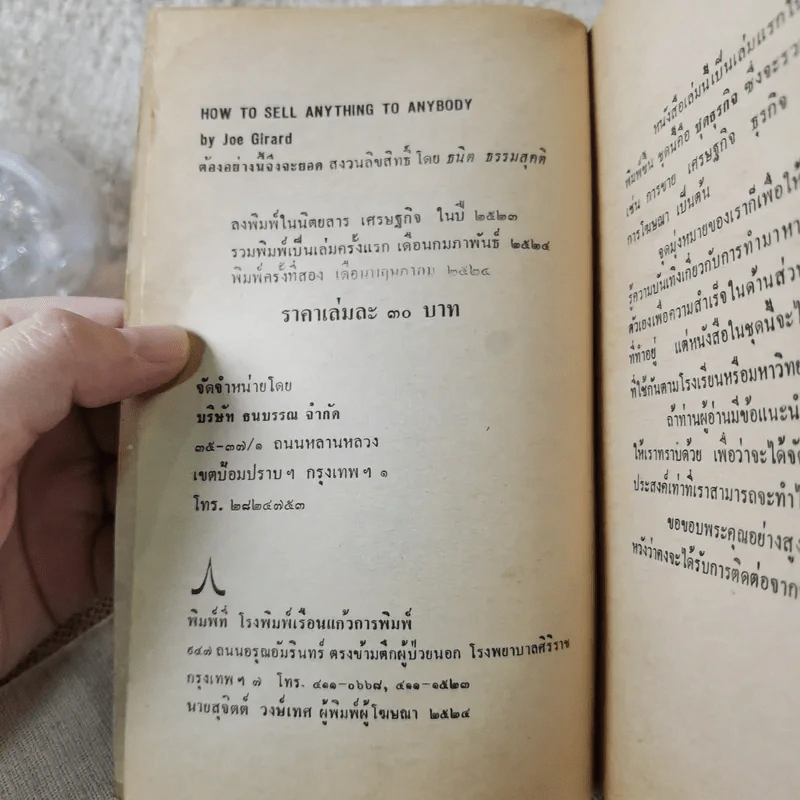 HOW TO SELL ANYTHING TO ANYBODY
by Joe Girard
ต้องอย่างนี้จึงจะยอด สงวนลิขสิทธิ์ โดย ธนิต ธรรมสุคติ
ลงพิมพ์ในนิตยสาร เศรษฐกิจ ในปี ๒๕๒๓
รวมพิมพ์เป็นเล่มครั้งแรก เดือนกมภาพันธ์ ๒๕๒๔
พิมพ์ครั้งที่สอง เดือนพฤษภาคม ๒๕๒๔
ราคาเล่มละ ๓๐ บาท
จัดจำหน่ายโดย
บริษัท ธนบรรณ จำกัด
๓๕-๓๗/๑ ถนนหลานหลวง
เขตป้อมปราบฯ กรุงเทพฯ ๑
โทร. ๒๘๒๔๗๕๓
พิมพ์ที่ โรงพิมพ์เรือนแก้วการพิมพ์
๙๔๗ ถนนอรุณอัมรินทร์ ตรงข้ามตึกผู้ป่วยนอก โรงพยาบาลศิริราช
กรุงเทพฯ ๗ โทร. ๔๑๑-๐๖๖๘, ๔๑๑-๑๕๒๓
นายสุจิตต์ วงษ์เทศ ผู้พิมพ์ผู้โฆษณา ๒๕๒๔
หนังสือเล่มนี้เป็นเล่มแรกใน
พิมพ์ขึ้น ชุดนี้คือ ชุดธุรกิจ ซึ่งจะรว
เช่น การขาย เศรษฐกิจ ธุรกิจ
การโฆษณา เป็นต้น
จุดมุ่งหมายของเราก็เพื่อให้
รู้ความบันเทิงเกี่ยวกับการทำมาหา
ตัวเองเพื่อความสำเร็จในด้านส่วน
ที่ทำอยู่ แต่หนังสือในชุดนี้จะไ
ที่ใช้กันตามโรงเรียนหรือมหาวิทย
ถ้าท่านผู้อ่านมีข้อแนะนำ
ให้เราทราบด้วย เพื่อว่าจะได้จัด
ประสงค์เท่าที่เราสามารถจะทำไ
ขอขอบพระคุณอย่างสูง
หวังว่าคงจะได้รับการติดต่อจาก